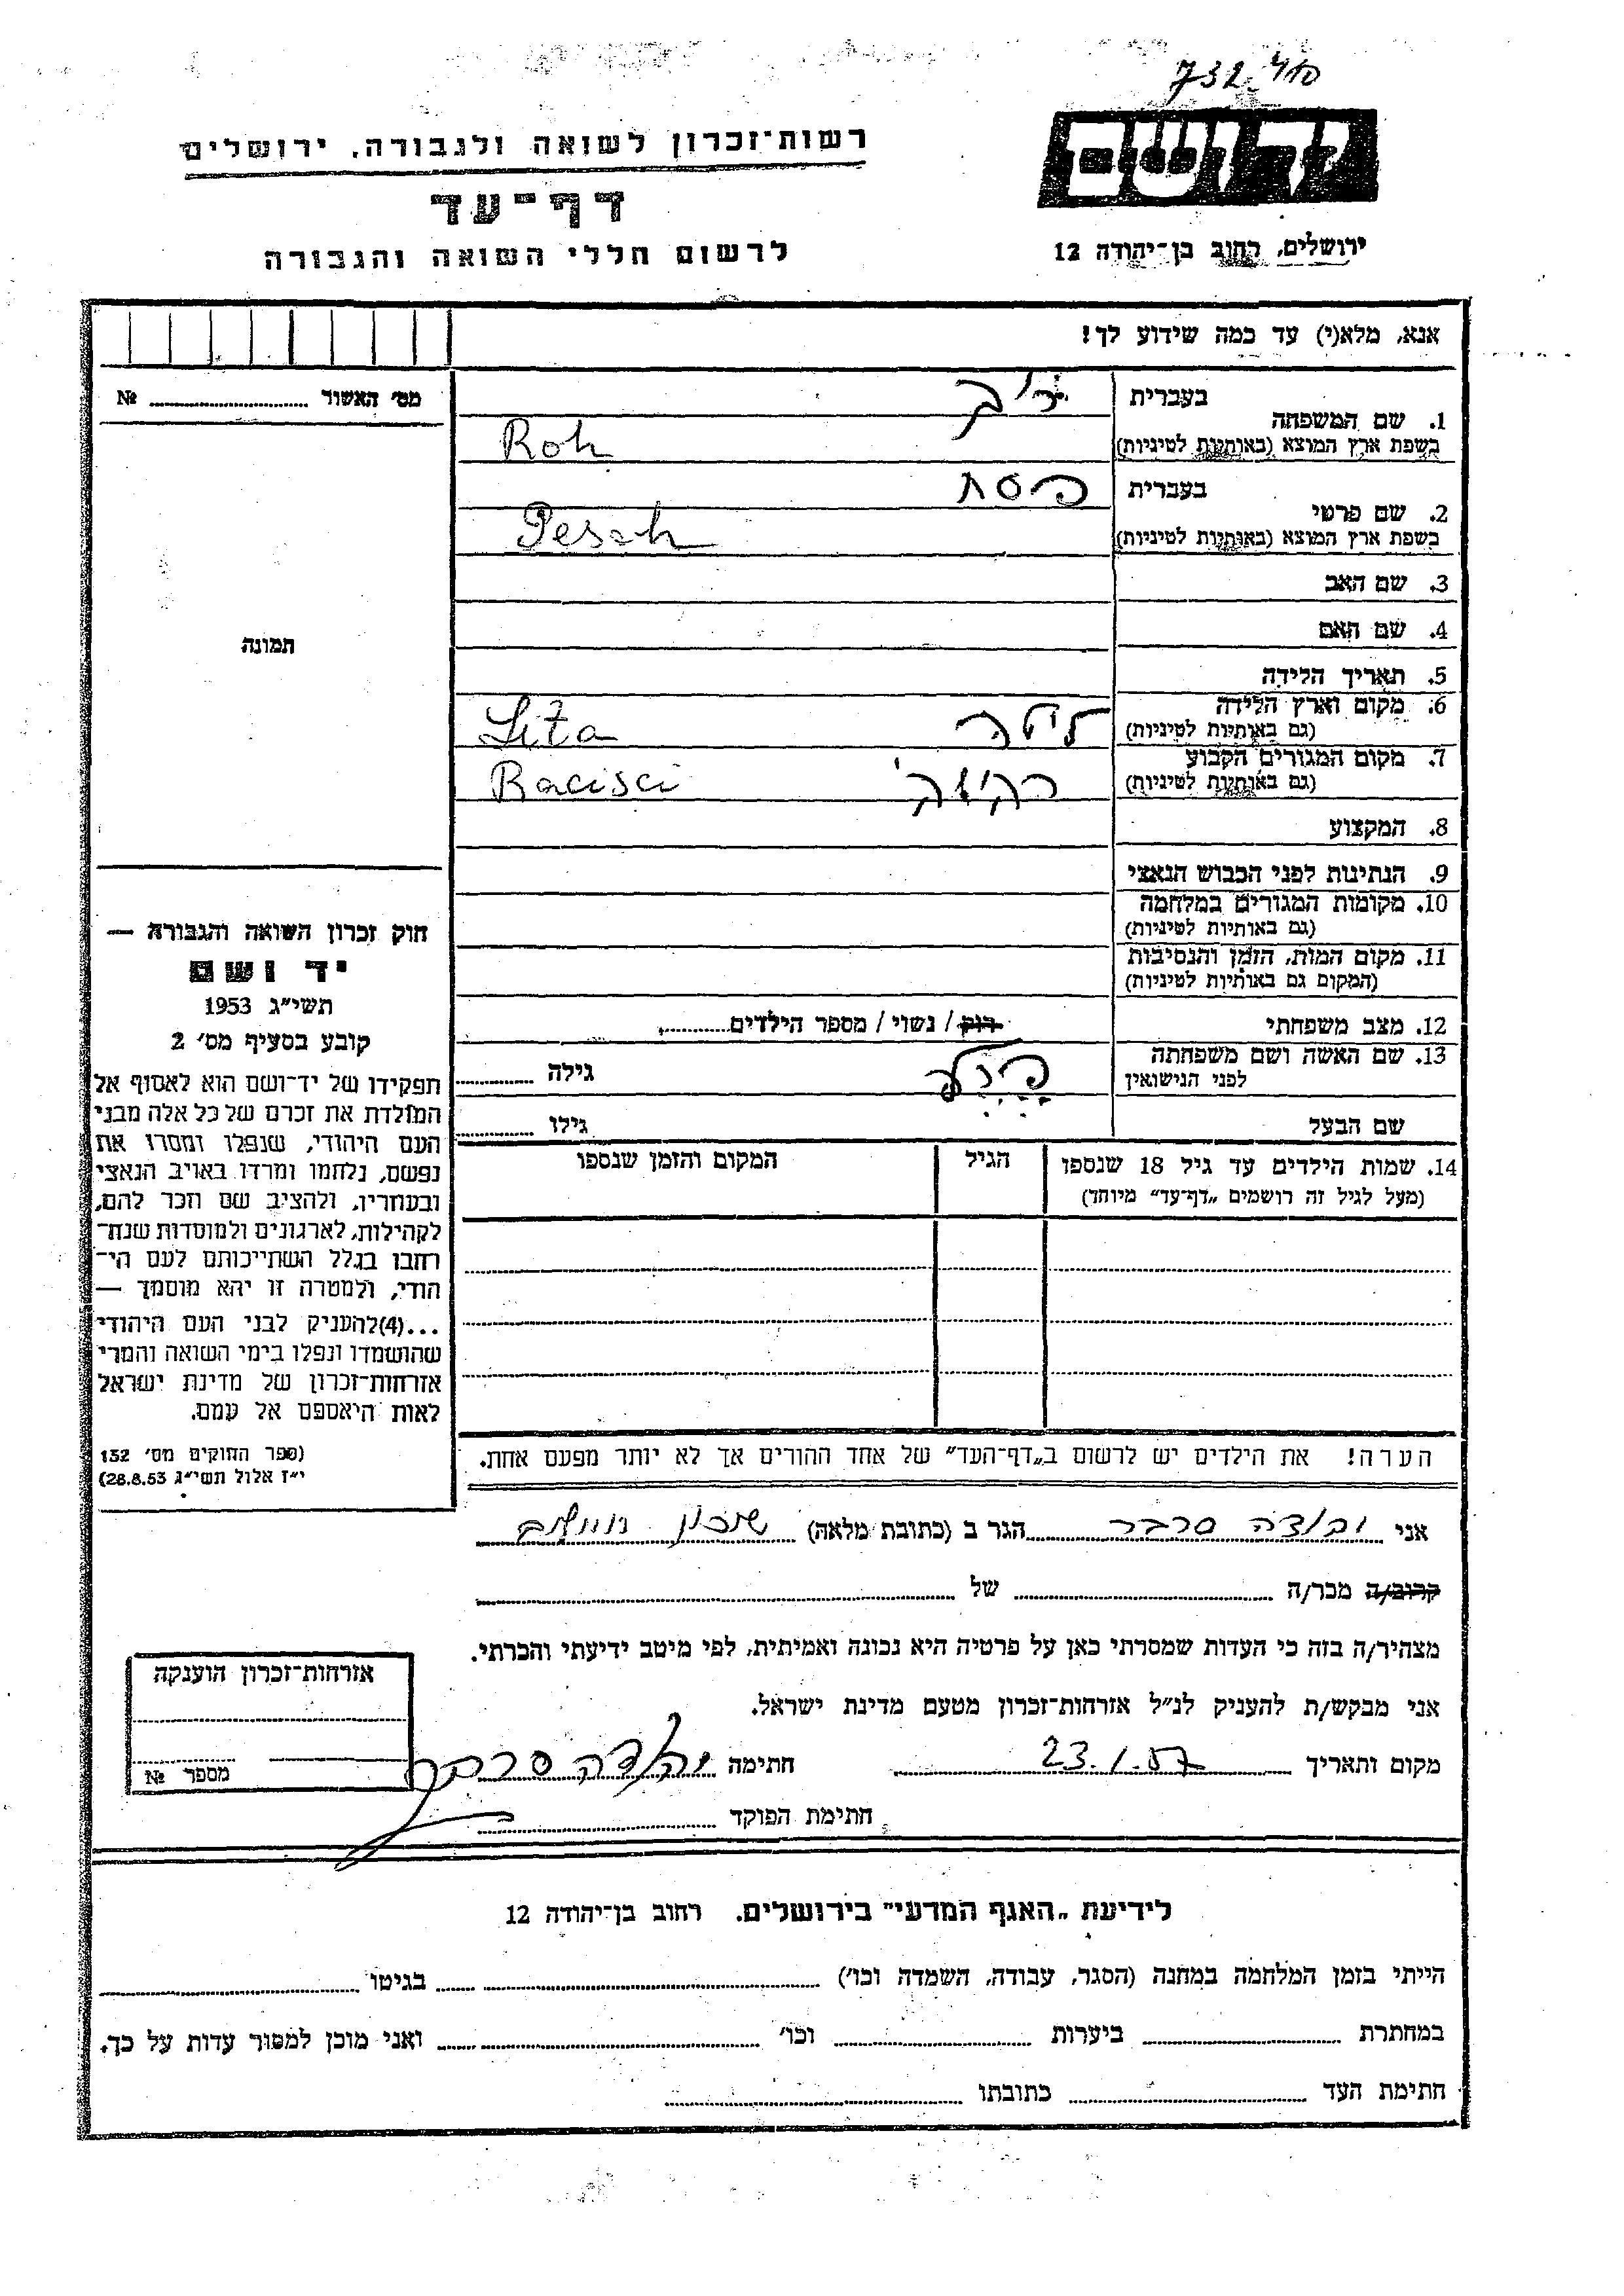 732 410
יד ושם
רשות־זכרון לשואה ולגבורה, ירושלים
דף־עד
לרשום חללי השואה והגבורה
ירושלים, רחוב בן־יהודה 12
אנא, מלא(י) עד כמה שידוע לך!
מס׳ האשור № 
1. שם המשפחה
בעברית
בשפת ארץ המוצא (באותיות לטיניות) Roh
2. שם פרטי
בעברית פסח
בשפת ארץ המוצא (באותיות לטיניות) Pesah
3. שם האב
4. שם האם
5. תאריך הלידה
6. מקום וארץ הלידה
(גם באותיות לטיניות) ליטה Lita
7. מקום המגורים הקבוע
(גם באותיות לטיניות) Racisci
8. המקצוע
9. הנתינות לפני הכבוש הנאצי
10. מקומות המגורים במלחמה
(גם באותיות לטיניות)
11. מקום המות, הזמן והנסיבות
(המקום גם באותיות לטיניות)
12. מצב משפחתי רוק / נשוי / מספר הילדים
13. שם האשה ושם משפחתה
לפני הנישואין גילה
שם הבעל גילו
14. שמות הילדים עד גיל 18 שנספו הגיל המקום והזמן שנספו
(מעל לגיל זה רושמים „דף־עד״ מיוחד)
הערה! את הילדים יש לרשום ב„דף־העד״ של אחד ההורים אך לא יותר מפעם אחת.
תמונה
חוק זכרון השואה והגבורה —
יד ושם
תשי״ג 1953
קובע בסעיף מס׳ 2
תפקידו של יד־ושם הוא לאסוף אל
המולדת את זכרם של כל אלה מבני
העם היהודי, שנפלו ומסרו את
נפשם, נלחמו ומרדו באויב הנאצי
ובעוזריו, ולהציב שם וזכר להם,
לקהילות, לארגונים ולמוסדות שנח־
רחבו בגלל השתייכותם לעם הי־
הודי, ולמטרה זו יהא מוסמך —
...(4)להעניק לבני העם היהודי
שהושמדו ונפלו בימי השואה והמרי
אזרחות־זכרון של מדינת ישראל
לאות היאספם אל עמם.
(ספר החוקים מס׳ 132
י״ז אלול תשי״ג 28.8.53)
אני יהודה סרבר הגר ב (כתובת מלאה) שכון
קרוב/ה מכר/ה של
מצהיר/ה בזה כי העדות שמסרתי כאן על פרטיה היא נכונה ואמיתית, לפי מיטב ידיעתי והכרתי.
אני מבקש/ת להעניק לנ״ל אזרחות־זכרון מטעם מדינת ישראל.
מקום ותאריך 23.1.57 חתימה יהודה סרבר
חתימת הפוקד
אזרחות־זכרון הוענקה
מספר №
לידיעת „האגף המדעי״ בירושלים. רחוב בן־יהודה 12
הייתי בזמן המלחמה במחנה (הסגר, עבודה, השמדה וכו׳) בגיטו
במחתרת ביערות וכו׳ ואני מוכן למסור עדות על כך.
חתימת העד כתובתו